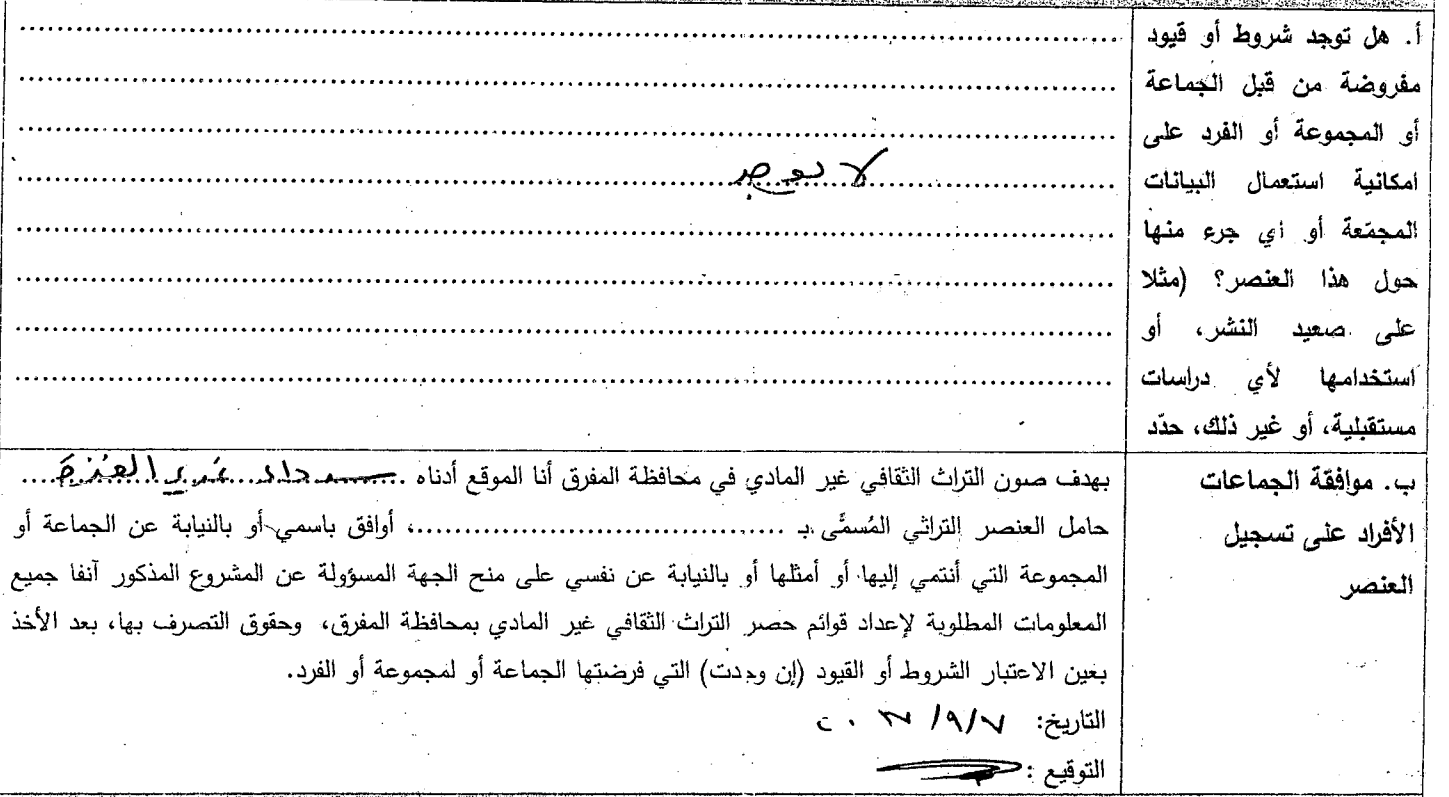 أ. هل توجد شروط أو قيود
مفروضة من قبل الجماعة
أو المجموعة أو الفرد على
امكانية استعمال البيانات
المجمّعة أو اي جرء منها
حول هذا العنصر؟ (مثلا
على صعيد النشر، أو
استخدامها لأي دراسات
مستقبلية، أو غير ذلك، حدّد
لا يوجد
ب. موافقة الجماعات
الأفراد على تسجيل
العنصر
بهدف صون التراث الثقافي غير المادي في محافظة المفرق أنا الموقع أدناه
حامل العنصر التراثي المُسمَّى بـ ......................................، أوافق باسمي أو بالنيابة عن الجماعة أو
المجموعة التي أنتمي إليها أو أمثلها أو بالنيابة عن نفسي على منح الجهة المسؤولة عن المشروع المذكور آنفا جميع
المعلومات المطلوبة لإعداد قوائم حصر التراث الثقافي غير المادي بمحافظة المفرق، وحقوق التصرف بها، بعد الأخذ
بعين الاعتبار الشروط أو القيود (إن وجدت) التي فرضتها الجماعة أو لمجموعة أو الفرد.
التاريخ:
التوقيع :